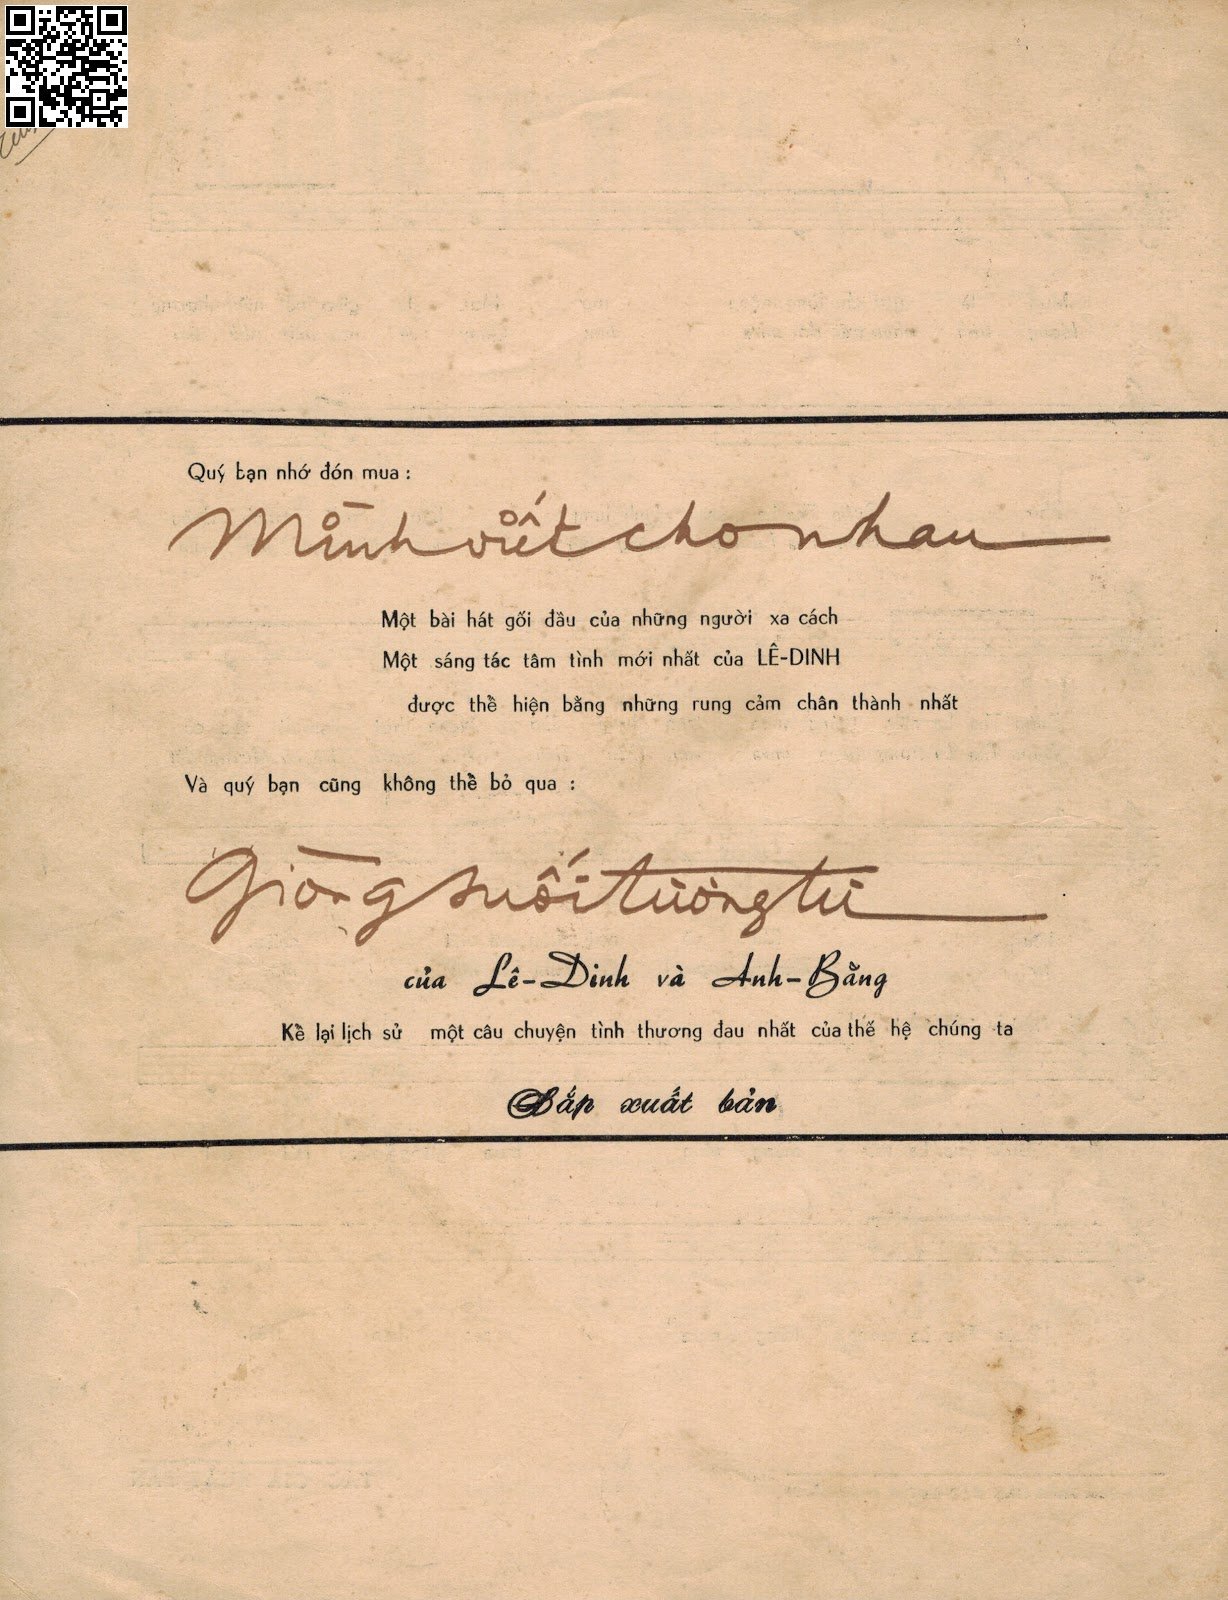 Quý bạn nhớ đón mua :
Mình viết cho nhau
Một bài hát gối đầu của những người xa cách
Một sáng tác tâm tình mới nhất của LÊ-DINH
được thể hiện bằng những rung cảm chân thành nhất
Và quý bạn cũng không thể bỏ qua :
Giòng suối tương tư
của Lê-Dinh và Anh-Bằng
Kể lại lịch sử một câu chuyện tình thương đau nhất của thế hệ chúng ta
Sắp xuất bản